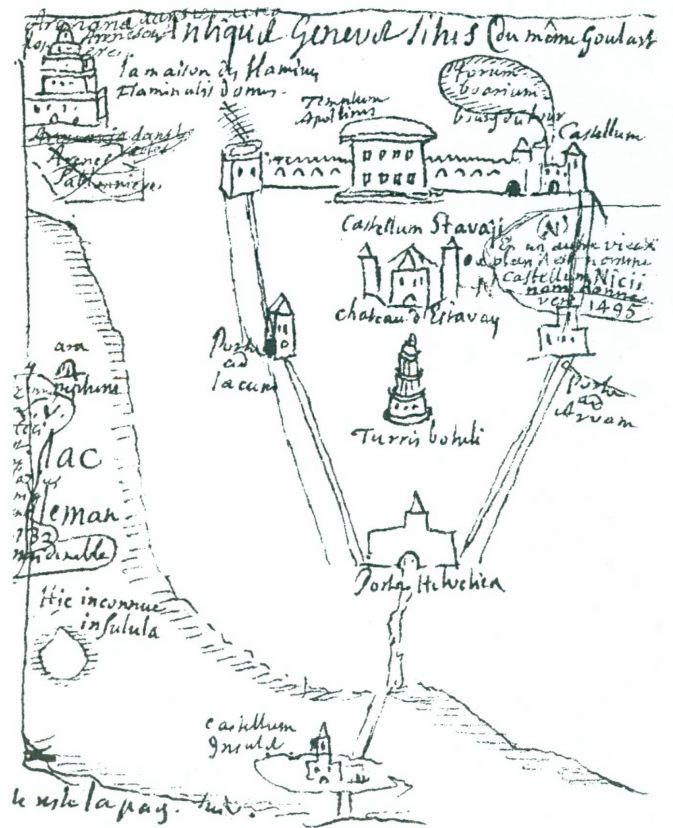 Antiquæ Genevæ situs (du même Goulart
la maison des flamines
Flaminalis domus.
Templum
Apollinis
forum
boarium
bourg du four
Castellum
Castellum Stavaji
(N)
En un autre vieux
plan il est nommé
Castellum Nicii
nom donné
vers 1495
chateau d'Estavay
Porta
ad
lacum
ara
neptuni
Porta
ad
Arvam
Turris boteli
lac
leman
Porta Helvetica
Hic inconnue
insulula
castellum
Insulæ
le reste la pag. suiv.